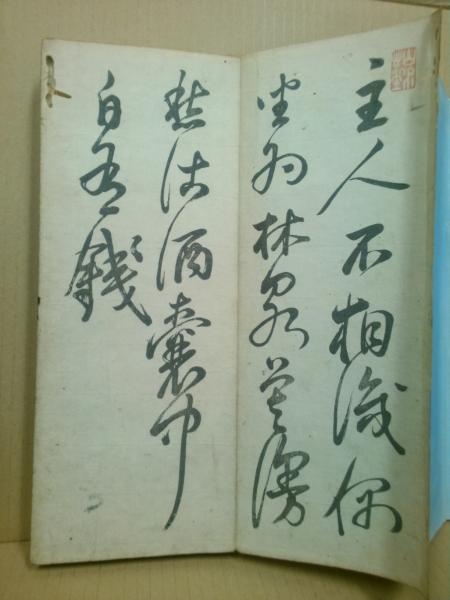 主人不相識偶
坐為林泉莫謾
愁沽酒囊中
自有錢